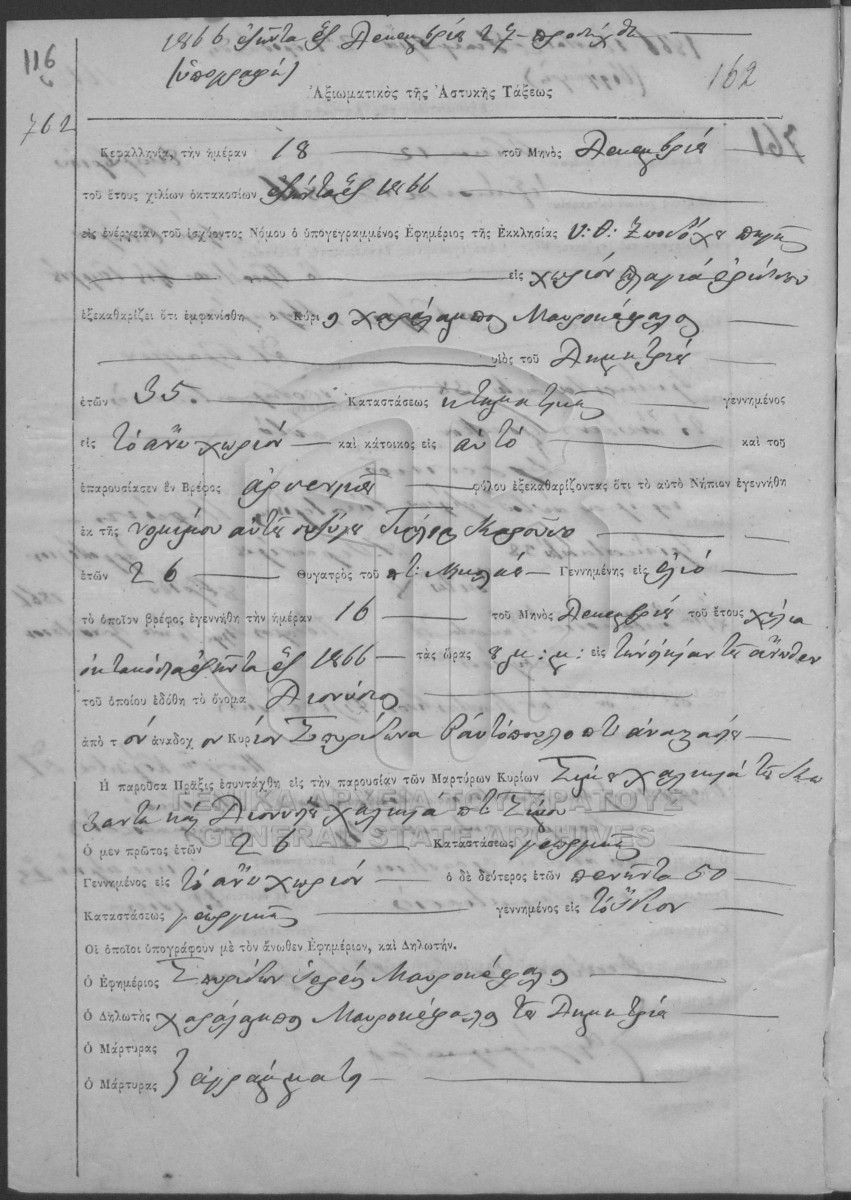 116
1866 ἑξῆντα ἕξ Δεκεμβρίου 27
(ὑπογραφή)
162
Ἀξιωματικὸς τῆς Ἀστυκῆς Τάξεως
762
761
Κεφαλληνία, τὴν ἡμέραν 18 τοῦ Μηνὸς Δεκεμβρίου
τοῦ ἔτους χιλίων ὀκτακοσίων ἑξῆντα ἕξ 1866
εἰς ἐνέργειαν τοῦ ἰσχύοντος Νόμου ὁ ὑπογεγραμμένος Ἐφημέριος τῆς Ἐκκλησίας Υ. Θ. Ζωοδόχου πηγῆς
εἰς χωρίον
ἐξεκαθαρίζει ὅτι ἐμφανίσθη ὁ Κύριος Χαράλαμπος Μαυροκέφαλος
υἱὸς τοῦ Δημητρίου
ἐτῶν 35. Καταστάσεως κτηματικῆς γεννημένος
εἰς τὸ ἄνω χωρίον καὶ κάτοικος εἰς αὐτὸ καὶ τοῦ
ἐπαρουσίασεν ἓν Βρέφος ἀρσενικοῦ φύλου ἐξεκαθαρίζοντας ὅτι τὸ αὐτὸ Νήπιον ἐγεννήθη
ἐκ τῆς νομίμου αὐτοῦ συζύγου
ἐτῶν 26 Θυγατρὸς τοῦ ποτὲ Γεννημένης εἰς
τὸ ὁποῖον βρέφος ἐγεννήθη τὴν ἡμέραν 16 τοῦ Μηνὸς Δεκεμβρίου τοῦ ἔτους χίλια
ὀκτακόσια ἑξῆντα ἕξ 1866 τὰς ὥρας 8 μ: μ: εἰς τὴν οἰκίαν τοῦ ἄνωθεν
τοῦ ὁποίου ἐδόθη τὸ ὄνομα Διονύσιος
ἀπὸ τὸν ἀνάδοχον Κυρίον Σπυρίδωνα Ραυτόπουλο ποτὲ
Ἡ παροῦσα Πρᾶξις ἐσυντάχθη εἰς τὴν παρουσίαν τῶν Μαρτύρων Κυρίων Σίμου Χαλικιᾶ τοῦ Κων
σαντῆ καὶ Διονυσίου Χαλικιᾶ ποτὲ Σίμου
Ὁ μεν πρῶτος ἐτῶν 26 Καταστάσεως γεωργικῆς
Γεννημένος εἰς τὸ ἄνω χωρίον ὁ δὲ δεύτερος ἐτῶν πενῆντα 50
Καταστάσεως γεωργικῆς γεννημένος εἰς τὸ ἴδιον
Οἱ ὁποῖοι ὑπογράφουν μὲ τὸν ἄνωθεν Ἐφημέριον, καὶ Δηλωτήν.
Ὁ Ἐφημέριος Σπυρίδων ἱερεὺς Μαυροκέφαλος
Ὁ Δηλωτὴς Χαράλαμπος Μαυροκέφαλος τοῦ Δημητρίου
Ὁ Μάρτυρας
Ὁ Μάρτυρας } ἀγράμματοι
ΓΕΝΙΚΑ ΑΡΧΕΙΑ ΤΟΥ ΚΡΑΤΟΥΣ
GENERAL STATE ARCHIVES